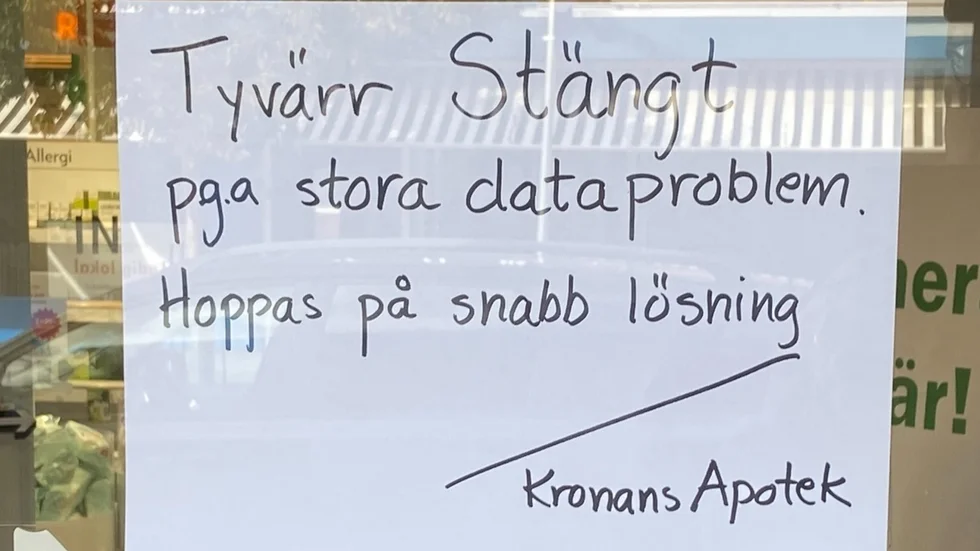 Tyvärr Stängt
pg.a stora dataproblem.
Hoppas på snabb lösning
Kronans Apotek
Allergi
IN
är!